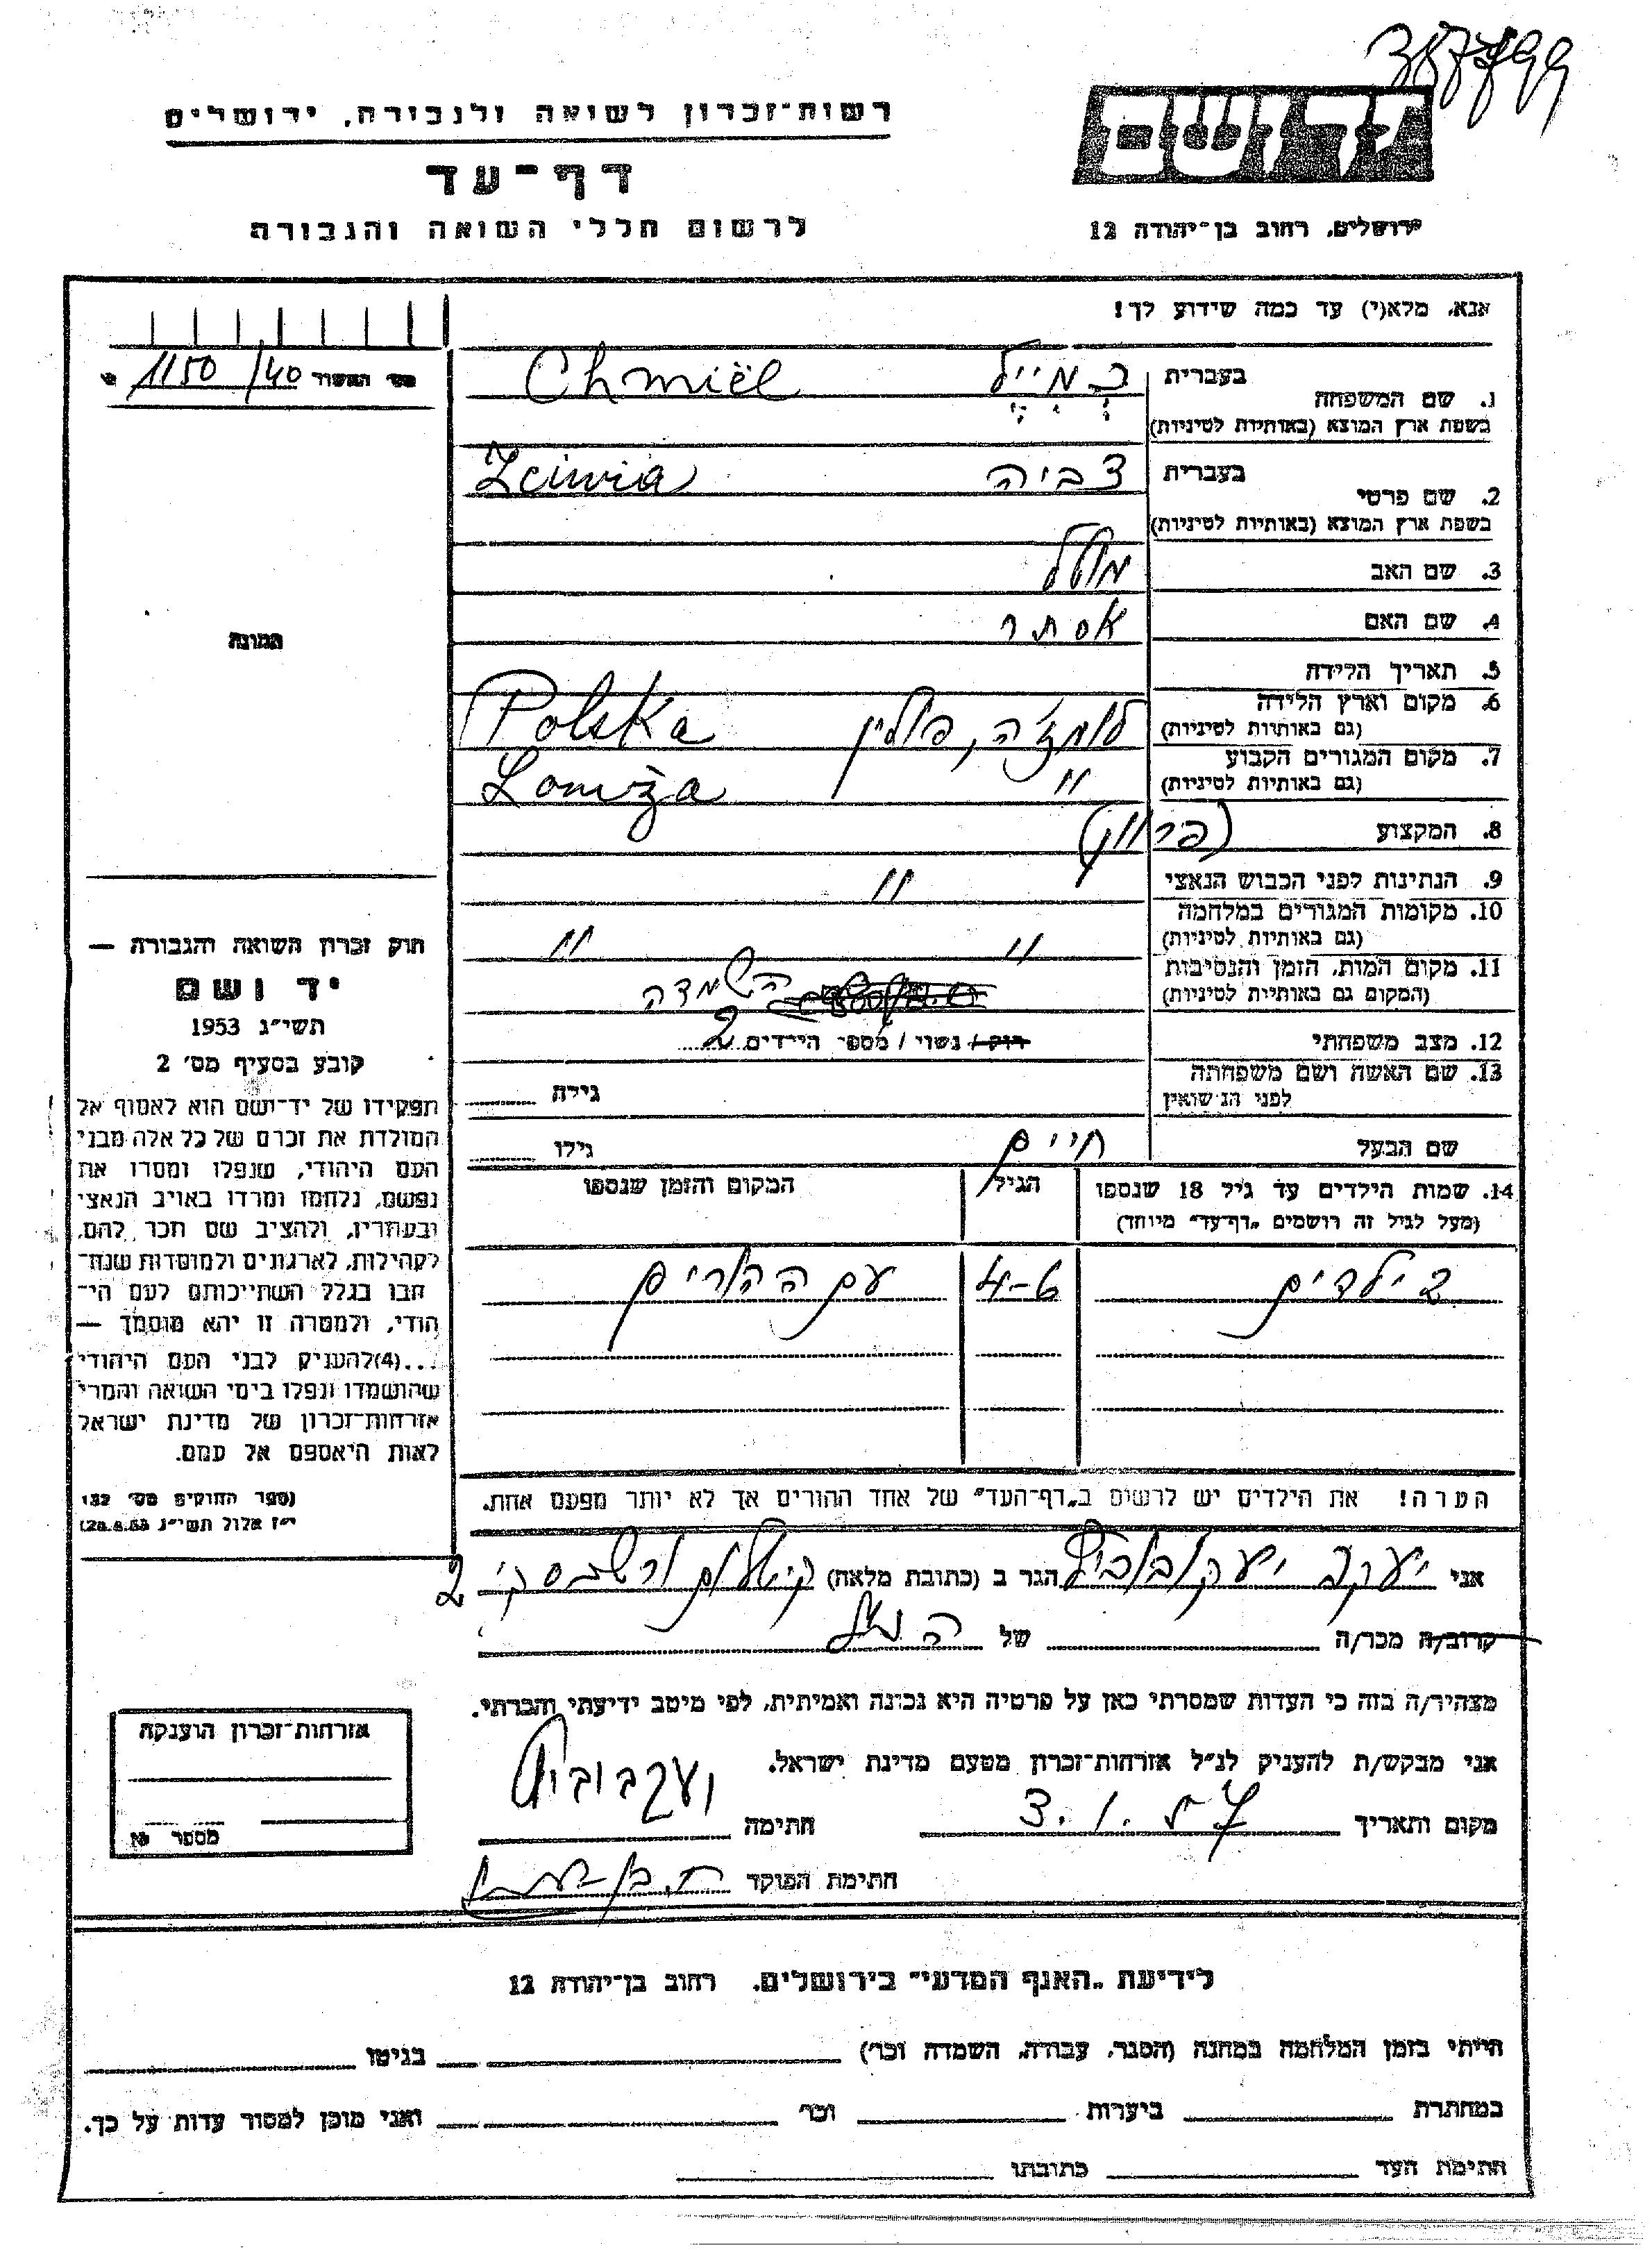 רשות־זכרון לשואה ולגבורה, ירושלים
דף־עד
לרשום חללי השואה והגבורה
יד ושם
ירושלים, רחוב בן־יהודה 12
אנא, מלא(י) עד כמה שידוע לך!
מס' התיק 1150/40
1. שם המשפחה בעברית כמייל Chmiël
בשפת ארץ המוצא (באותיות לטיניות)
2. שם פרטי בעברית צביה Zciwia
בשפת ארץ המוצא (באותיות לטיניות)
3. שם האב מוטל
4. שם האם אסתר
5. תאריך הלידה
6. מקום וארץ הלידה לומז'ה, פולין Polska
(גם באותיות לטיניות)
7. מקום המגורים הקבוע " Lomża
(גם באותיות לטיניות)
8. המקצוע
9. הנתינות לפני הכבוש הנאצי "
10. מקומות המגורים במלחמה " "
(גם באותיות לטיניות)
11. מקום המות, הזמן והנסיבות השמדה
(המקום גם באותיות לטיניות)
12. מצב משפחתי רווק / נשוי / מספר הילדים 2
13. שם האשה ושם משפחתה גילה
לפני הנשואין
שם הבעל חיים גילו
14. שמות הילדים עד גיל 18 שנספו הגיל המקום והזמן שנספו
(מעל לגיל זה רושמים „דף־עד" מיוחד)
2 ילדים 4-6 עם ההורים
הערה! את הילדים יש לרשום ב„דף־העד" של אחד ההורים אך לא יותר מפעם אחת.
תמונה
חוק זכרון השואה והגבורה —
יד ושם
תשי"ג 1953
קובע בסעיף מס' 2
תפקידו של יד־ושם הוא לאסוף אל
המולדת את זכרם של כל אלה מבני
העם היהודי, שנפלו ומסרו את
נפשם, נלחמו ומרדו באויב הנאצי
ובעוזריו, ולהציב שם וזכר להם,
לקהילות, לארגונים ולמוסדות שנח־
רבו בגלל השתייכותם לעם הי־
הודי, ולמטרה זו יהא מוסמך —
...(4)להעניק לבני העם היהודי
שהושמדו ונפלו בימי השואה והמרי
אזרחות־זכרון של מדינת ישראל
לאות היאספם אל עמם.
(ספר החוקים מס' 132
י"ז אלול תשי"ג 28.8.53)
אני יעקב יעקובוביץ הגר ב (כתובת מלאה) 2
קרוב/ה מכר/ה של הנ"ל
מצהיר/ה בזה כי העדות שמסרתי כאן על פרטיה היא נכונה ואמיתית, לפי מיטב ידיעתי והכרתי.
אני מבקש/ת להעניק לנ"ל אזרחות־זכרון מטעם מדינת ישראל.
מקום ותאריך 3.1.57 חתימה יעקבוביץ
חתימת הפוקד
אזרחות־זכרון הוענקה
מספר
לידיעת „האגף המדעי" בירושלים. רחוב בן־יהודה 12
הייתי בזמן המלחמה במחנה (הסגר, עבודה, השמדה וכו') בגיטו
במחתרת ביערות וכו' ואני מוכן למסור עדות על כך.
חתימת העד כתובתו